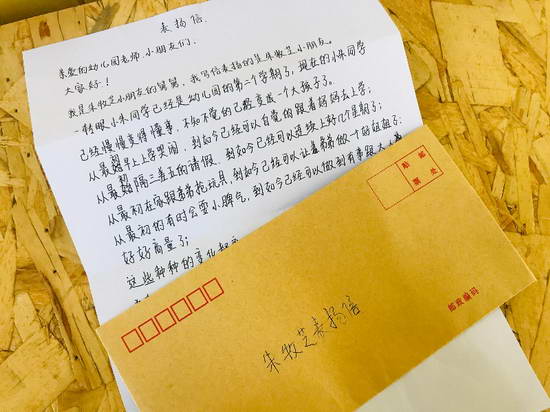 表扬信
亲爱的幼儿园老师、小朋友们、
大家好！！
我是朱牧芝小朋友的舅舅，我写信表扬的是朱牧芝小朋友。
一转眼小朱同学已经是幼儿园的第二个学期了，现在的小朱同学
已经慢慢变得懂事，不知不觉的已经变成一个大孩子了。
从最初早上上学哭闹，到如今已经可以自觉的跟着妈妈去上学；
从最初隔三差五的请假，到如今已经可以连续上好几个星期了；
从最初在家跟弟弟抢玩具，到如今已经可以让着弟弟做一个好姐姐了；
从最初的有时会耍小脾气，到如今已经可以做到有事跟大人
好好商量了；
这些种种的变化都
邮
票
处
贴
朱牧芝表扬信
邮政编码